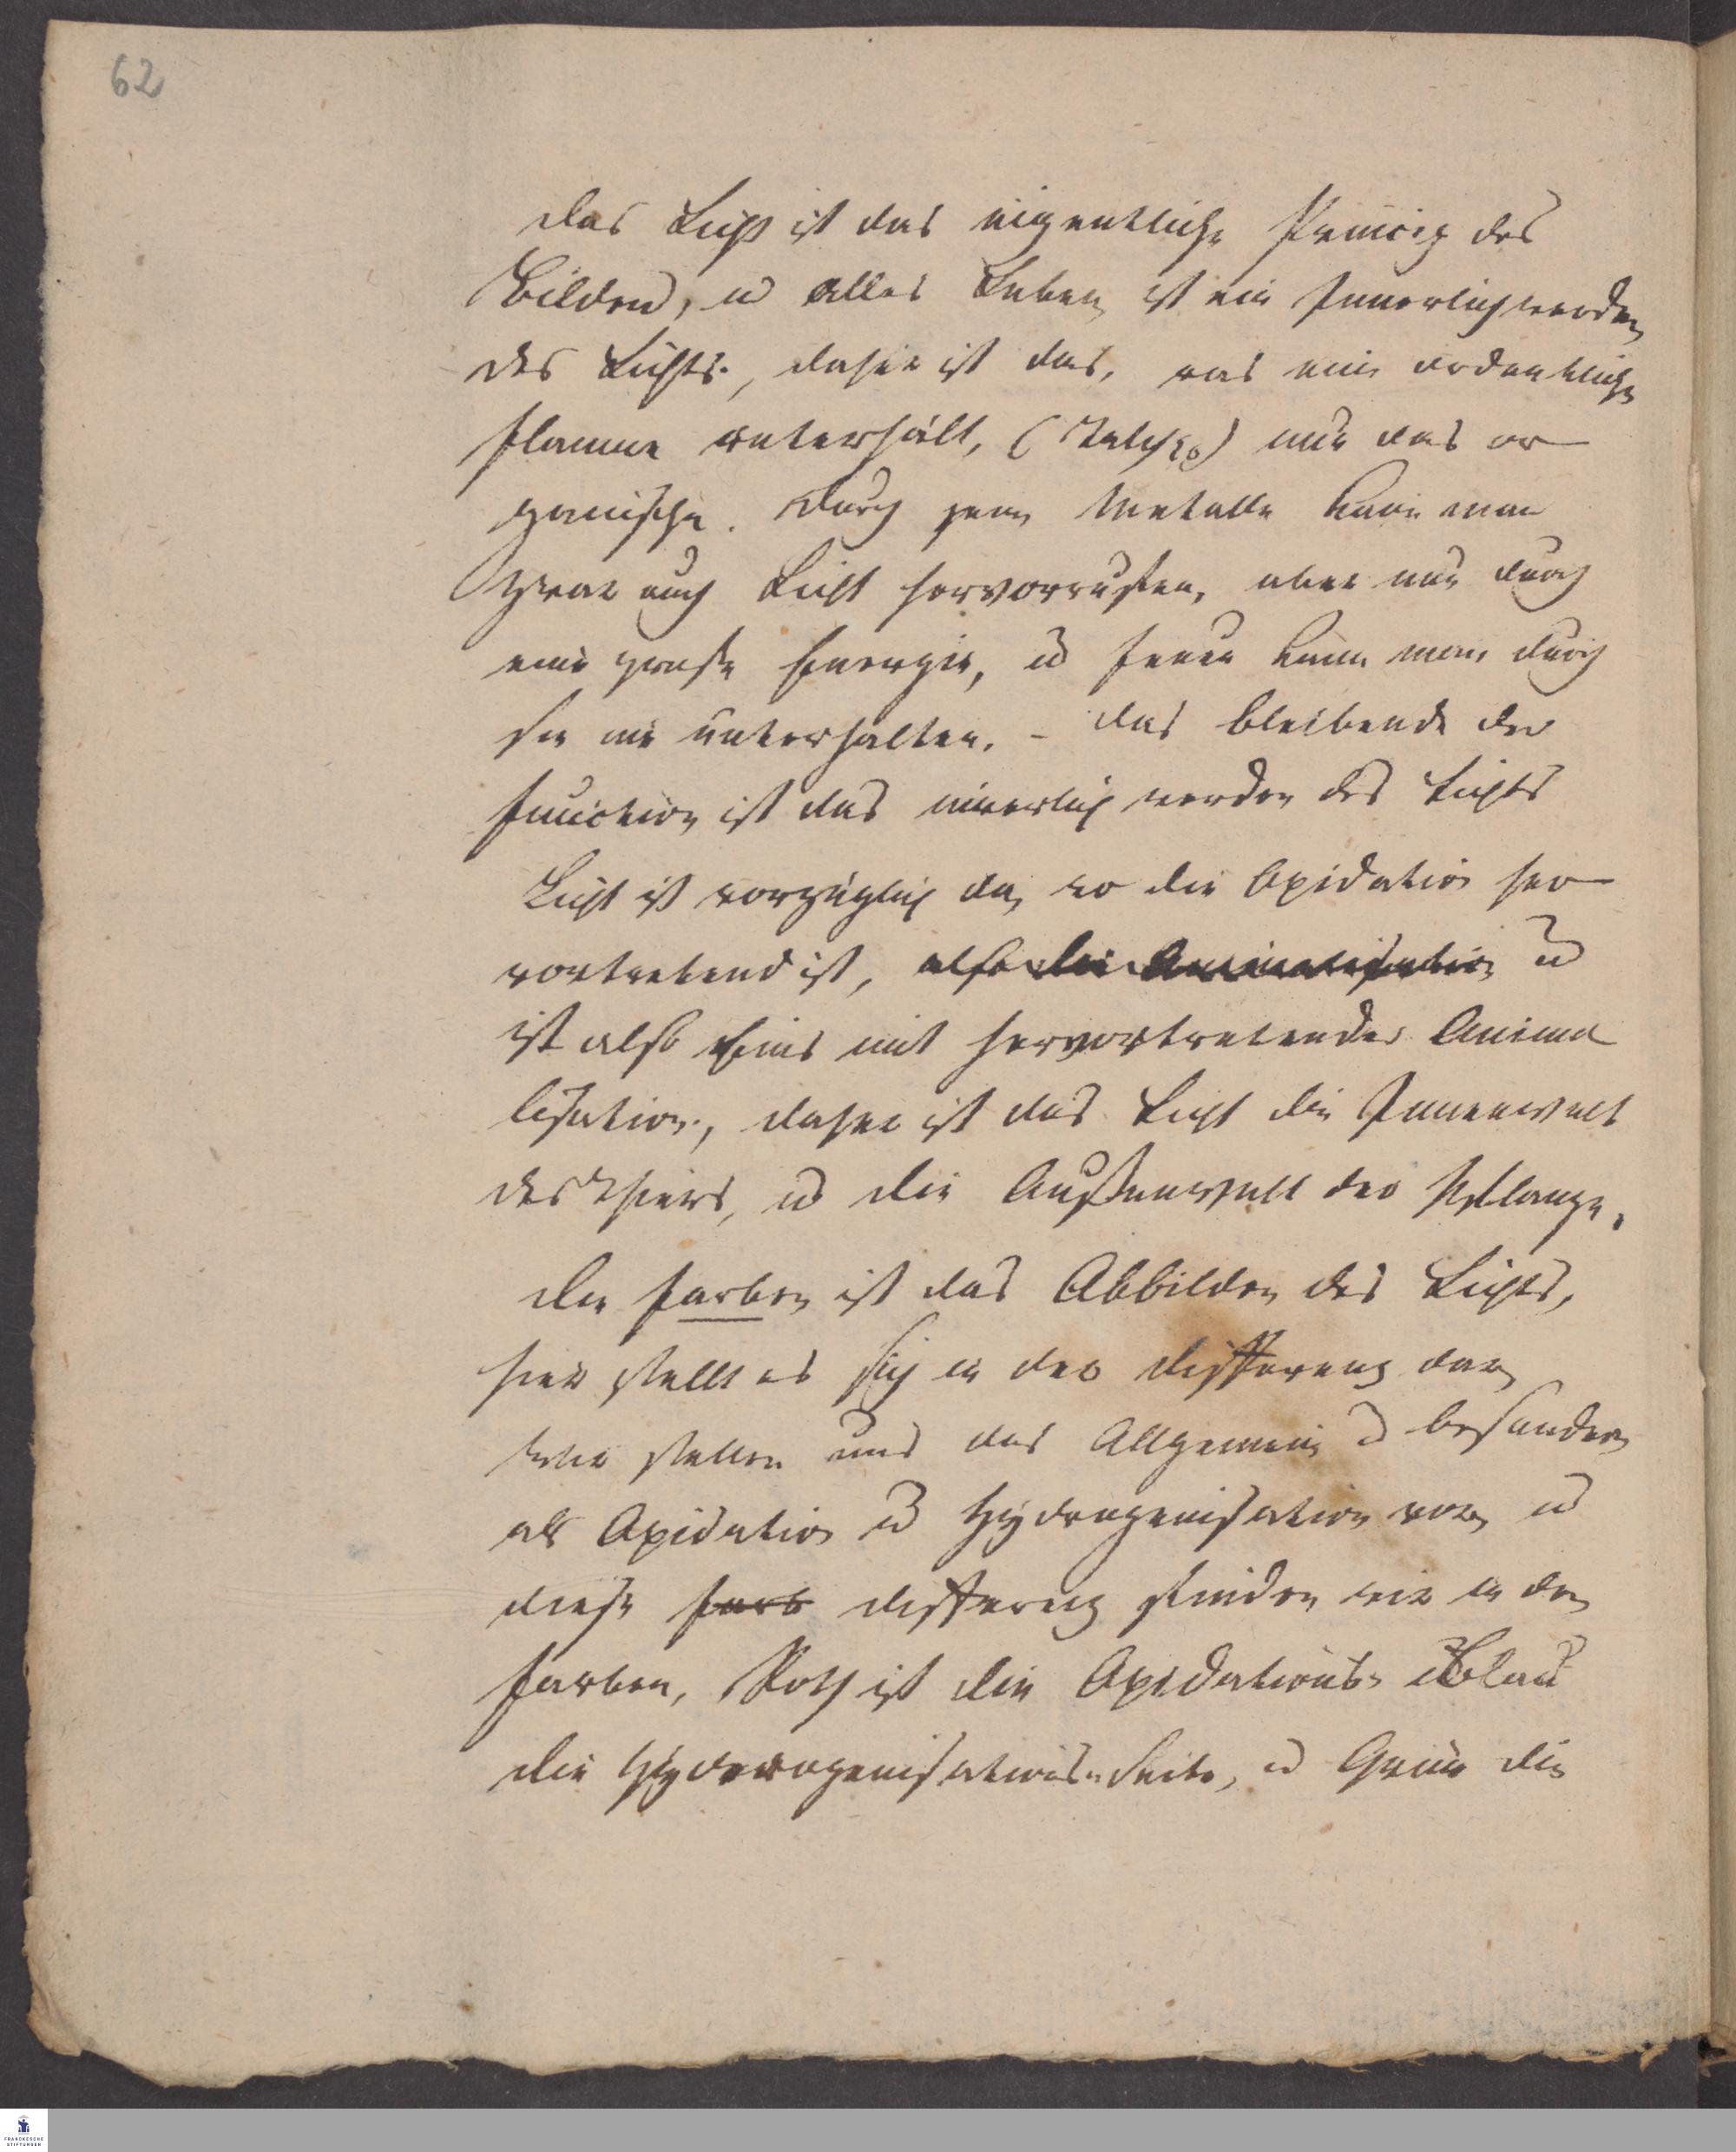 62
das Licht ist das eigentliche Princip des
Bildens, u alles Leben ist ein Innerlichwerden
des Lichts., daher ist das, was eine ordentliche
Flamme unterhält, (Talg) nur das or
ganische. Durch Metalle kann man
zwar auch Licht hervorrufen, aber nur durch
eine große Energie, u Feuer kann man durch
sie nie unterhalten. – das bleibende der
Function ist das innerlich werden des Lichts
Licht ist vorzüglich da, wo die Oxidation her
vortretend ist, also die Animalisation u
ist also Eins mit hervortretender Anima
lisation., daher ist das Licht die Innenwelt
des Thiers, u die Außenwelt der Pflanze.
Die Farben ist das Abbilden des Lichts,
hier stellt es sich in der Differenz dar,
wir stellen uns das Allgemein u besondere
als Oxidation u Hydrogenisation vor, u
diese Farb Differenz finden wir in den
Farben, Roth ist die Oxidations- u Blau
die Hydrogenisations-Seite, u Grün die
FRANCKESCHE
STIFTUNGEN